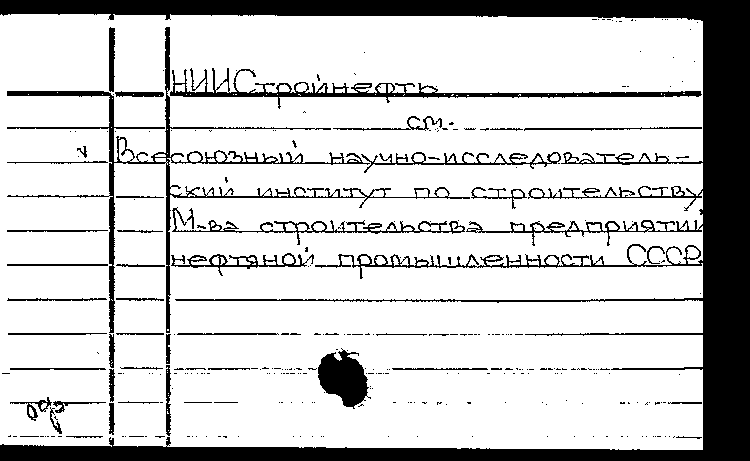 НИИСтройнефть
см.
Всесоюзный научно-исследователь-
ский институт по строительству
М-ва строительства предприятий
нефтяной промышленности СССР.